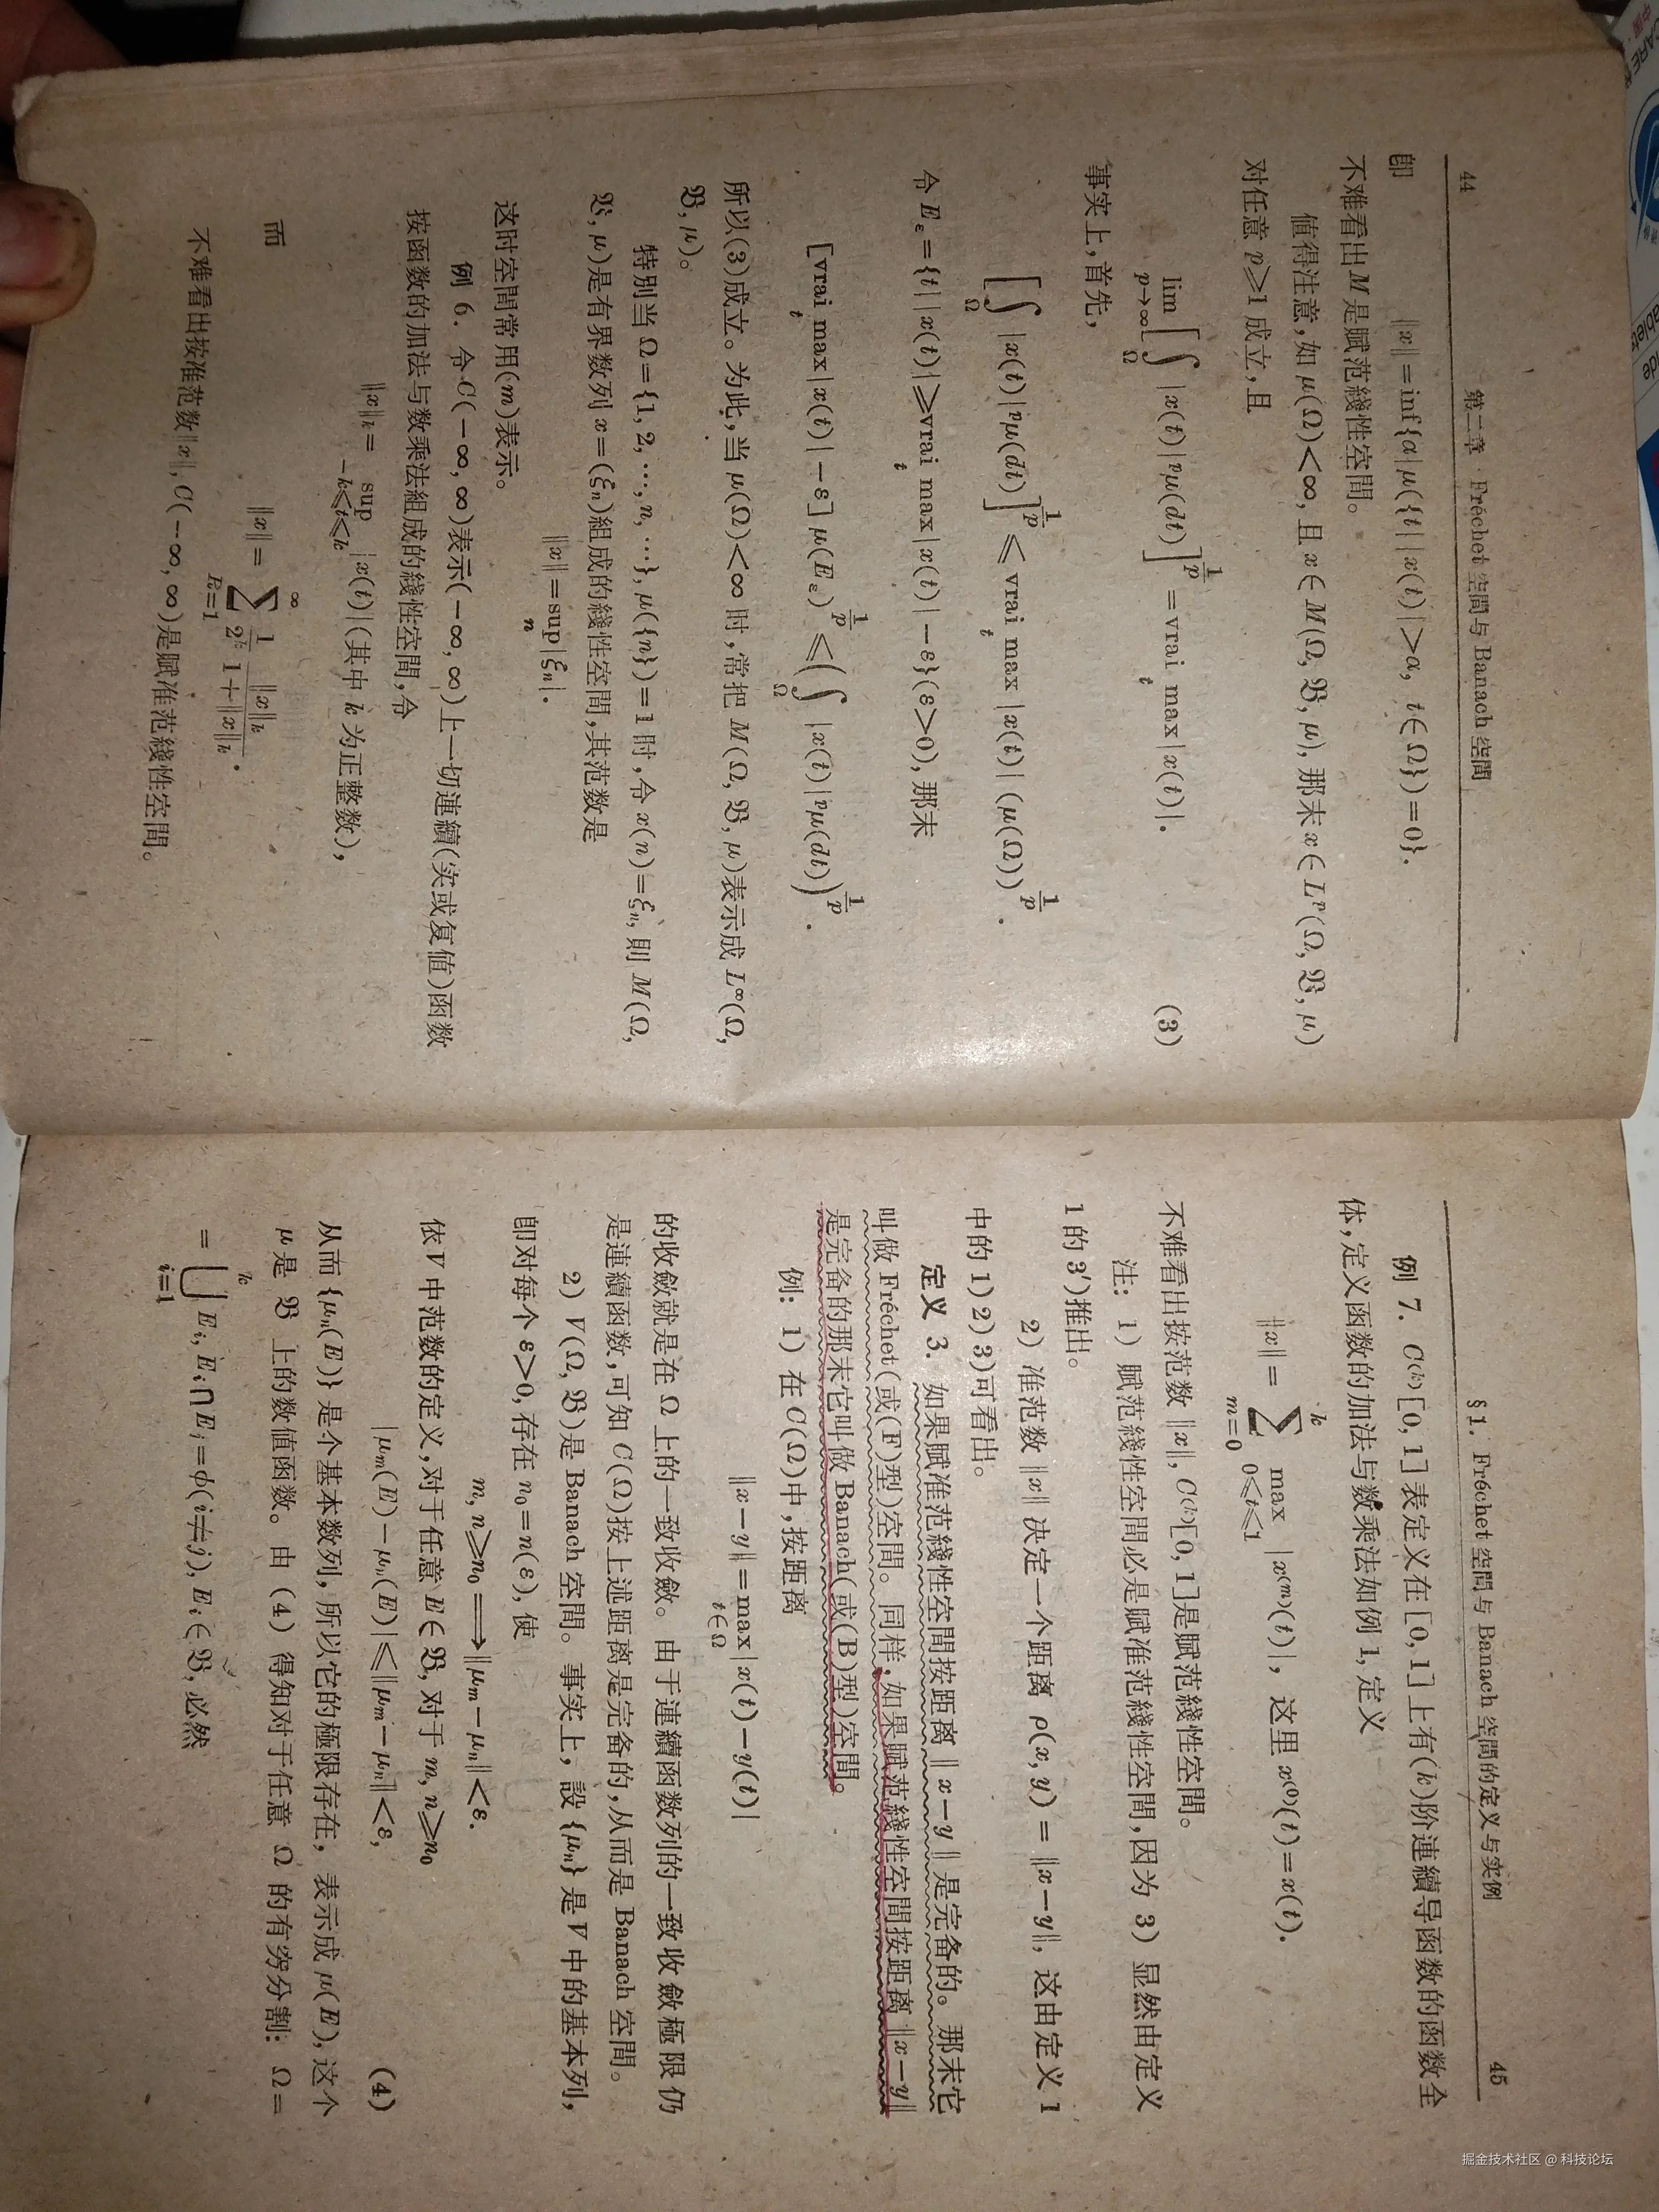 44
第二章 Fréchet 空間与 Banach 空間
即 ‖x‖=inf{α|μ({t||x(t)|>α, t∈Ω})=0}.
不难看出M是賦范綫性空間。
値得注意,如 μ(Ω)<∞, 且 x∈M(Ω, 𝔅, μ), 那末 x∈L^p(Ω, 𝔅, μ)
对任意 p⩾1 成立,且
lim_{p→∞}[∫_Ω |x(t)|^p μ(dt)]^{1/p} = vrai max_t |x(t)|. (3)
事实上,首先,
[∫_Ω |x(t)|^p μ(dt)]^{1/p} ⩽ vrai max_t |x(t)| (μ(Ω))^{1/p}.
令 E_ε={t||x(t)|⩾vrai max_t |x(t)|−ε}(ε>0), 那末
[vrai max_t |x(t)|−ε] μ(E_ε)^{1/p} ⩽ (∫_Ω |x(t)|^p μ(dt))^{1/p}.
所以(3)成立。为此,当 μ(Ω)<∞ 时,常把 M(Ω, 𝔅, μ)表示成 L^∞(Ω,
𝔅, μ)。
特別当 Ω={1, 2, ⋯, n, ⋯}, μ({n})=1 时,令 x(n)=ξ_n, 則 M(Ω,
𝔅, μ)是有界数列 x=(ξ_n)組成的綫性空間,其范数是
‖x‖=sup_n |ξ_n|.
这时空間常用(m)表示。
例 6. 令 C(−∞, ∞)表示(−∞, ∞)上一切連續(实或复值)函数
按函数的加法与数乘法組成的綫性空間,令
‖x‖_k = sup_{−k⩽t⩽k} |x(t)|(其中 k 为正整数),
而 ‖x‖ = ∑_{k=1}^∞ 1/2^k ‖x‖_k/(1+‖x‖_k).
不难看出按准范数‖x‖, C(−∞, ∞)是賦准范綫性空間。
§1. Fréchet 空間与 Banach 空間的定义与实例
45
例 7. C^{(k)}[0, 1]表定义在[0, 1]上有(k)阶連續导函数的函数全
体,定义函数的加法与数乘法如例 1, 定义
‖x‖ = ∑_{m=0}^k max_{0⩽t⩽1} |x^{(m)}(t)|, 这里 x^{(0)}(t)=x(t).
不难看出按范数 ‖x‖, C^{(k)}[0, 1]是賦范綫性空間。
注: 1) 賦范綫性空間必是賦准范綫性空間,因为 3) 显然由定义
1 的 3′)推出。
2) 准范数 ‖x‖ 决定一个距离 ρ(x, y) = ‖x−y‖, 这由定义 1
中的 1) 2) 3)可看出。
定义 3. 如果賦准范綫性空間按距离 ‖x−y‖ 是完备的。那末它
叫做 Fréchet(或(F)型)空間。同样,如果賦范綫性空間按距离 ‖x−y‖
是完备的那末它叫做 Banach(或(B)型)空間。
例: 1) 在 C(Ω)中,按距离
‖x−y‖=max_{t∈Ω}|x(t)−y(t)|
的收斂就是在 Ω 上的一致收斂。由于連續函数列的一致收斂極限仍
是連續函数,可知 C(Ω)按上述距离是完备的,从而是 Banach 空間。
2) V(Ω, 𝔅)是 Banach 空間。事实上,設 {μ_n} 是 V 中的基本列,
即对每个 ε>0, 存在 n_0=n(ε), 使
m, n⩾n_0⟹‖μ_m−μ_n‖<ε.
依 V 中范数的定义,对于任意 E∈𝔅, 对于 m, n⩾n_0
|μ_m(E)−μ_n(E)|⩽‖μ_m−μ_n‖<ε, (4)
从而 {μ_n(E)} 是个基本数列,所以它的極限存在,表示成 μ(E), 这个
μ 是 𝔅 上的数値函数。由 (4) 得知对于任意 Ω 的有穷分割: Ω=
=⋃_{i=1}^k E_i, E_i∩E_j=ϕ(i≠j), E_i∈𝔅, 必然
掘金技术社区 @ 科技论坛